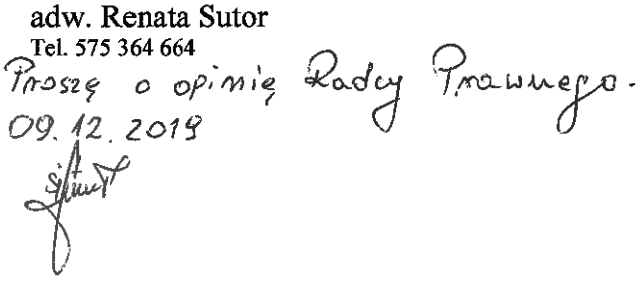 adw. Renata Sutor
Tel. 575 364 664
Proszę o opinię Radcy Prawnego.
09.12.2019